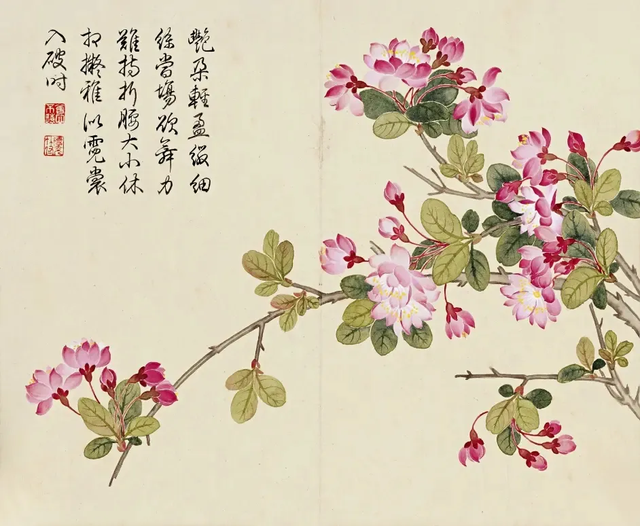 艷朶輕盈綴細
絲當場欲舞力
難持折腰大小休
相擬雅似霓裳
入破时